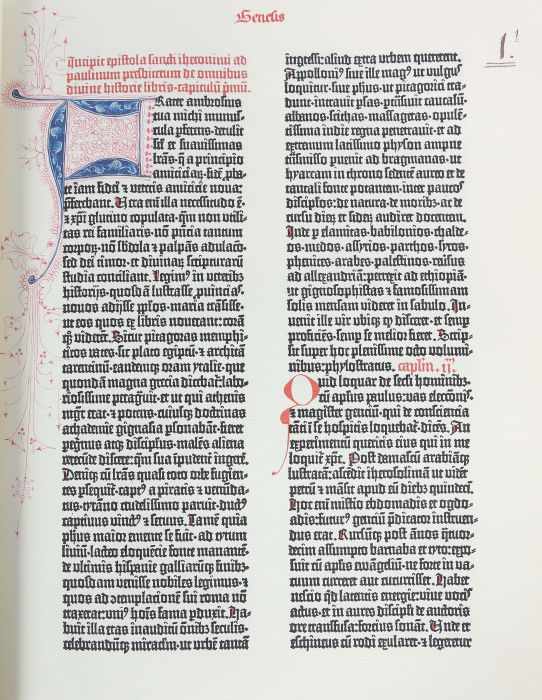 Genesis
1.
Incipit epistola sancti iheronimi ad
paulinum presbiterum de omnibus
divine historie libris. capitulū pmū.
Frater ambrosius
tua michi munus-
cula pferens. detulit
sil et suavissimas
lrās. q̄ a principio
amiciciaꝝ. fidē pba-
te iam fidei ⁊ veteris amicicie nova:
pferebant. Vera eni illa necessitudo ē.
⁊ xpī glutino copulata: qm̄ non utili-
tas rei familiaris. nō pn̄tia tantum
corpoꝝ. nō sbdola ⁊ palpās adulaco:
sed dei timor. et divinaꝝ scripturarū
studia conciliant. Legim⁹ in veterib⁹
historijs. quosdā lustrasse puincias.
novos adijsse pplos. maria trāsisse.
ut eos quos ex libris noverant: corā
q̄ viderēt. Sicut pitagoras memphi-
ticos vates. sic plato egiptū. ⁊ archita
tarentinū. eandemq̄ oram ytalie. que
quondā magna grecia dicebat̄: labo-
riosissime peragravit. et ut qui athenis
mgr̄ erat. ⁊ potens. cuiusq̄ doctrinas
achademie gignasia psonabāt. fieret
peginus atq̄ discipulus. malēs aliena
verecūde discere: qm̄ sua ipudent̄ ingerē.
Deniq̄ cū lrās quasi toto orbe fugien-
tes psequit̄. capt⁹ a piratis ⁊ venūda-
tus. tyrāno crudelissimo paruit. duct⁹
captivus vinct⁹ ⁊ servus. Tamē quia
phus maior emente se fuit. ad tytum
liviū. lacteo eloquēcie fonte manantē.
de ultimis hispanie galliarūq̄ finib⁹.
quosdam venisse nobiles legimus. ⁊
quos ad ɔtemplacionē sui roma nō
traxerat: uni⁹ hoīs fama pduxit. Ha-
buit illa etas inauditū oīnib⁹ seculis.
celebrandūq̄ miraclm̄. ut urbē tantā
ingressi: aliud extra urbem quererent.
Appolloni⁹ sive ille mag⁹ ut vulgus
loquitur. sive phus. ut pitagorici tra-
dunt. intravit psas. ptrāsivit caucasū.
albanos. scithas. massagetas. opulē-
tissima indie regna penetravit. et ad
extremum latissimo physon ampne
trāsmisso puenit ad bragmanas. ut
hyarcam in throno sedentē aureo et de
tantali fonte potantem. inter paucos
discipulos. de natura. de moribus. ac de
cursu dierū et sideꝝ audiret docentem.
Inde p elamitas. babilonios. chalde-
os. medos. assyrios. parthos. syros.
phenices. arabes. palestinos. reversus
ad allexandriā: perrexit ad ethiopiā.
ut gignosophistas ⁊ famosissimam
solis mensam videret in sabulo. In-
venit ille vir ubiq̄ qd̄ disceret. et semp
proficiēs. semp se melior fieret. Scrip-
sit super hoc plenissime octo volumi-
nibus: phylostratus. caplm. ij.
Quid loquar de secli hominib⁹.
cū aplus paulus: vas electōnis.
⁊ magister genciū. qui de consciencia
tāti ī se hospitis loquebat̄. dicēs. An
experimentū queritis eius qui in me
loquit̄ xpc̄. Post damascū arabiāq̄
lustratā: ascēdit iherosolimā ut videt̄
petrū ⁊ māsit apud eū dieb⁹ quindecī.
Hoc eni misterio ebdomadis et ogdo-
adis: futur⁹ genciū pdicator instruen-
dus erat. Rursūq̄ post ānos qtuor-
decim assumpto barnaba et tyto: expo-
suit cū aplis evāgeliū. ne forte in va-
cuum curreret aut cucurrisset. Habet
nescio qd̄ latentis energie: vive vocis
actus. et in aures discipuli de auctoris
ore transfusa: forcius sonat. Unde et
eschineus cū rodi exularet. ⁊ legeretur